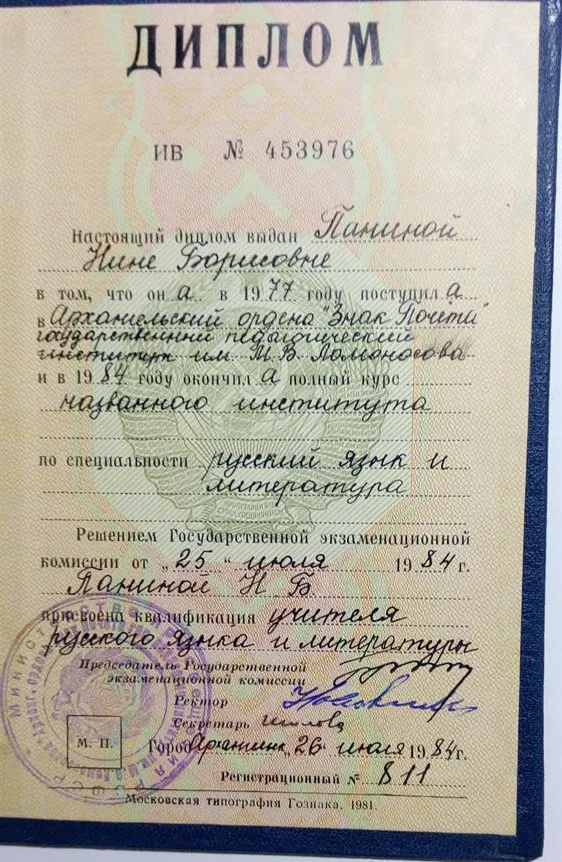 ДИПЛОМ
ИВ № 453976
Настоящий диплом выдан Паниной
Нине Борисовне
в том, что он а в 1977 году поступил а
в Архангельский ордена "Знак Почёта"
государственный педагогический
институт им. М. В. Ломоносова
и в 1984 году окончил а полный курс
названного института
по специальности русский язык и
литература
Решением Государственной экзаменационной
комиссии от „25" июля 1984 г.
Паниной Н Б
присвоена квалификация учителя
русского языка и литературы
Председатель Государственной
экзаменационной комиссии
Ректор
Секретарь
М. П.
Город „26" июля 1984г.
Регистрационный № 811
Московская типография Гознака. 1981.